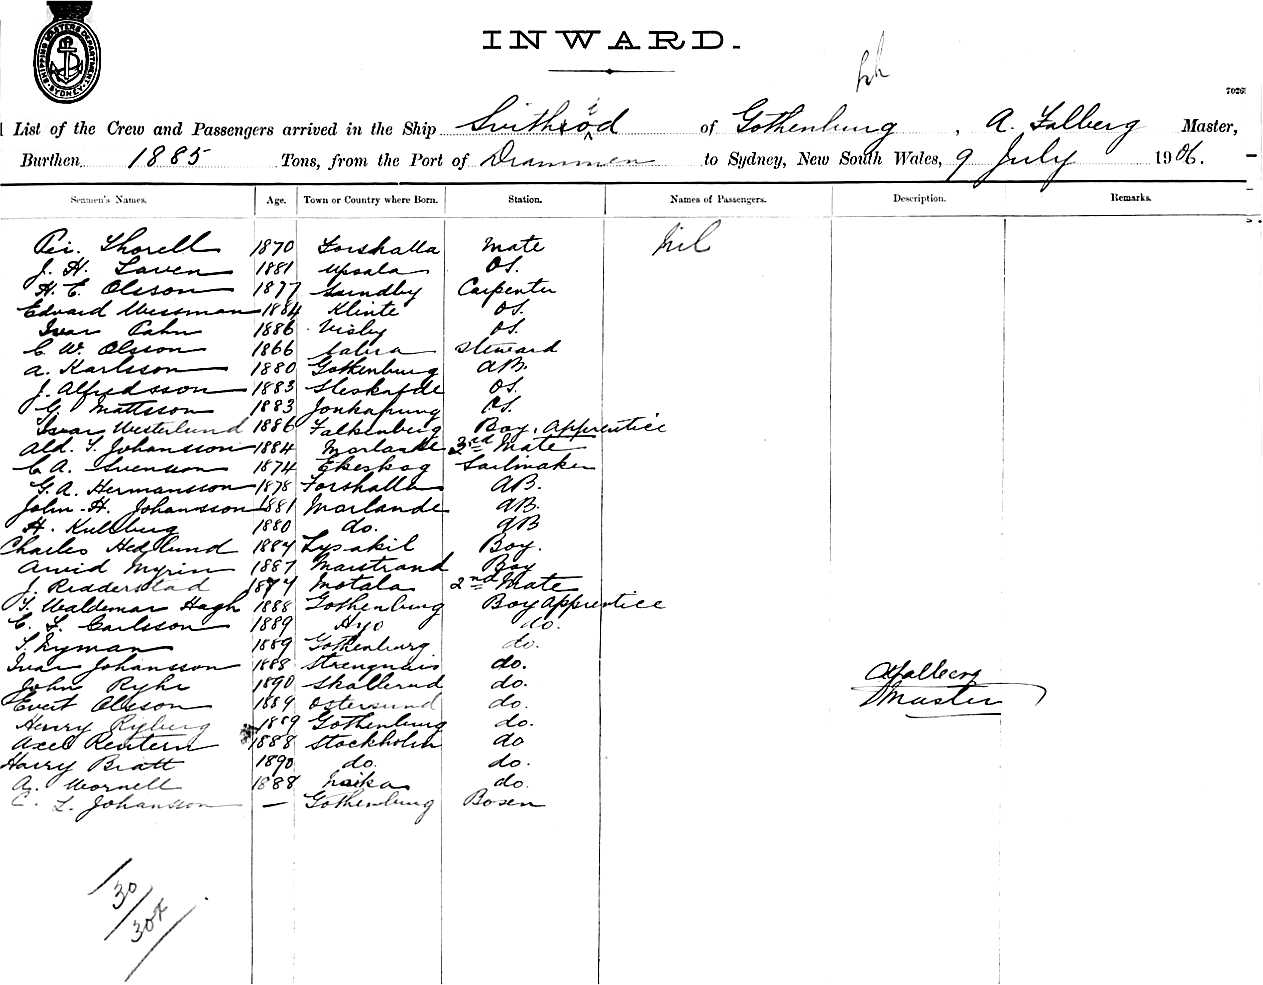 SHIPPING MASTERS DEPARTMENT SYDNEY
INWARD.
7026
List of the Crew and Passengers arrived in the Ship Svithiód of Gothenburg, A. Falberg Master,
Burthen 1885 Tons, from the Port of Drammen to Sydney, New South Wales, 9 July 1906.
Seamen's Names. Age. Town or Country where Born. Station. Names of Passengers. Description. Remarks.
Thorell 1870 Forshalla Mate Nil
J. H. Laven 1881 Upsala OS.
H. E. Olsson 1877 Carpenter
Edvard Wessman 1884 Klinte OS.
Ivar 1886 Visby OS.
C. W. Olsson 1866 Steward
A. Karlsson 1880 Gothenburg AB.
J. Alfredsson 1883 OS.
G. Mattsson 1883 Jonkapung OS.
Ivar Westerlund 1886 Falkenberg Boy, Apprentice
Ald. T. Johansson 1884 Morlande 3rd Mate
C. A. Svensson 1874 Ekeskog Sailmaker
G. A. Hermansson 1878 Forshalla AB.
John H. Johansson 1881 Morlande AB.
H. Kullberg 1880 do. AB
Charles Hedlund 1884 Lysakil Boy.
Arvid Myrin 1887 Marstrand Boy
J. Ridderstad 1874 Motala 2nd Mate
T. Waldemar Hagh 1888 Gothenburg Boy Apprentice
C. F. Carlsson 1889 Hjo do.
T. Nyman 1889 Gothenburg do.
Ivar Johansson 1888 Strengnais do.
John Ryhr 1890 Skallerud do.
Evert Olsson 1889 Ostersund do.
Henry Ryberg 1889 Gothenburg do.
Axel Rentern 1888 Stockholm do
Harry Bratt 1890 do. do.
A. Wornell 1888 do.
C. L. Johansson — Gothenburg Bosen
A Falberg
Master
30
30x